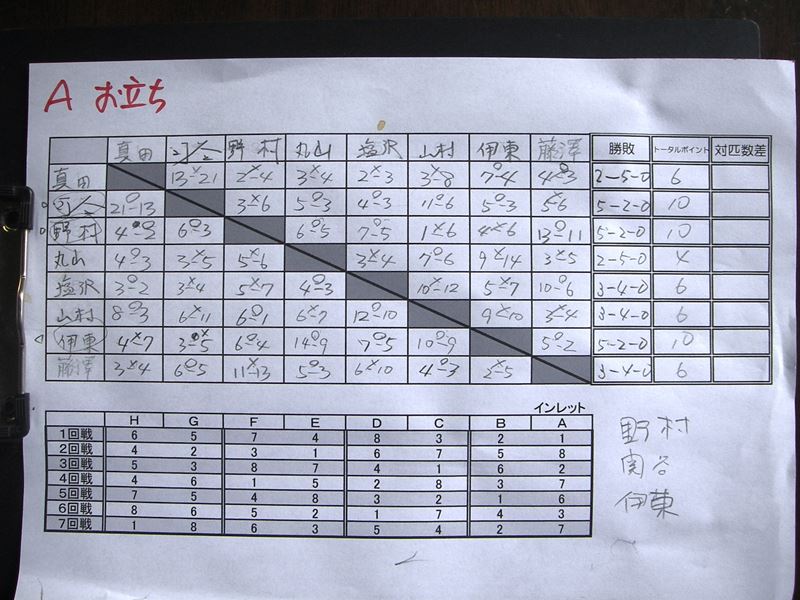 A お立ち
真田 野村 丸山 塩沢 山村 伊東 藤澤 勝敗 トータルポイント 対匹数差
真田 13×21 2×4 3×4 2×3 3×8 7○4 4○3 2-5-0 6
21○13 3×6 5○3 4○3 11○6 5○3 5×6 5-2-0 10
野村 4○2 6○3 6○5 7○5 1×6 4×6 13○11 5-2-0 10
丸山 4○3 3×5 5×6 3×4 7○6 9×14 3×5 2-5-0 4
塩沢 3○2 3×4 5×7 4○3 10×12 5×7 10○6 3-4-0 6
山村 8○3 6×11 6○1 6×7 12○10 9×10 3×4 3-4-0 6
伊東 4×7 3×5 6○4 14○9 7○5 10○9 5○2 5-2-0 10
藤澤 3×4 6○5 11×13 5○3 6×10 4○3 2×5 3-4-0 6
インレット
H G F E D C B A
1回戦 6 5 7 4 8 3 2 1
2回戦 4 2 3 1 6 7 5 8
3回戦 5 3 8 7 4 1 6 2
4回戦 4 6 1 5 2 8 3 7
5回戦 7 5 4 8 3 2 1 6
6回戦 8 6 5 2 1 7 4 3
7回戦 1 8 6 3 5 4 2 7
野村
関谷
伊東